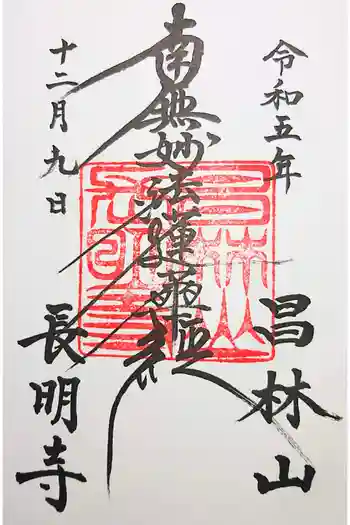 令和五年
昌林山
南無妙法蓮華経
十二月九日
長明寺